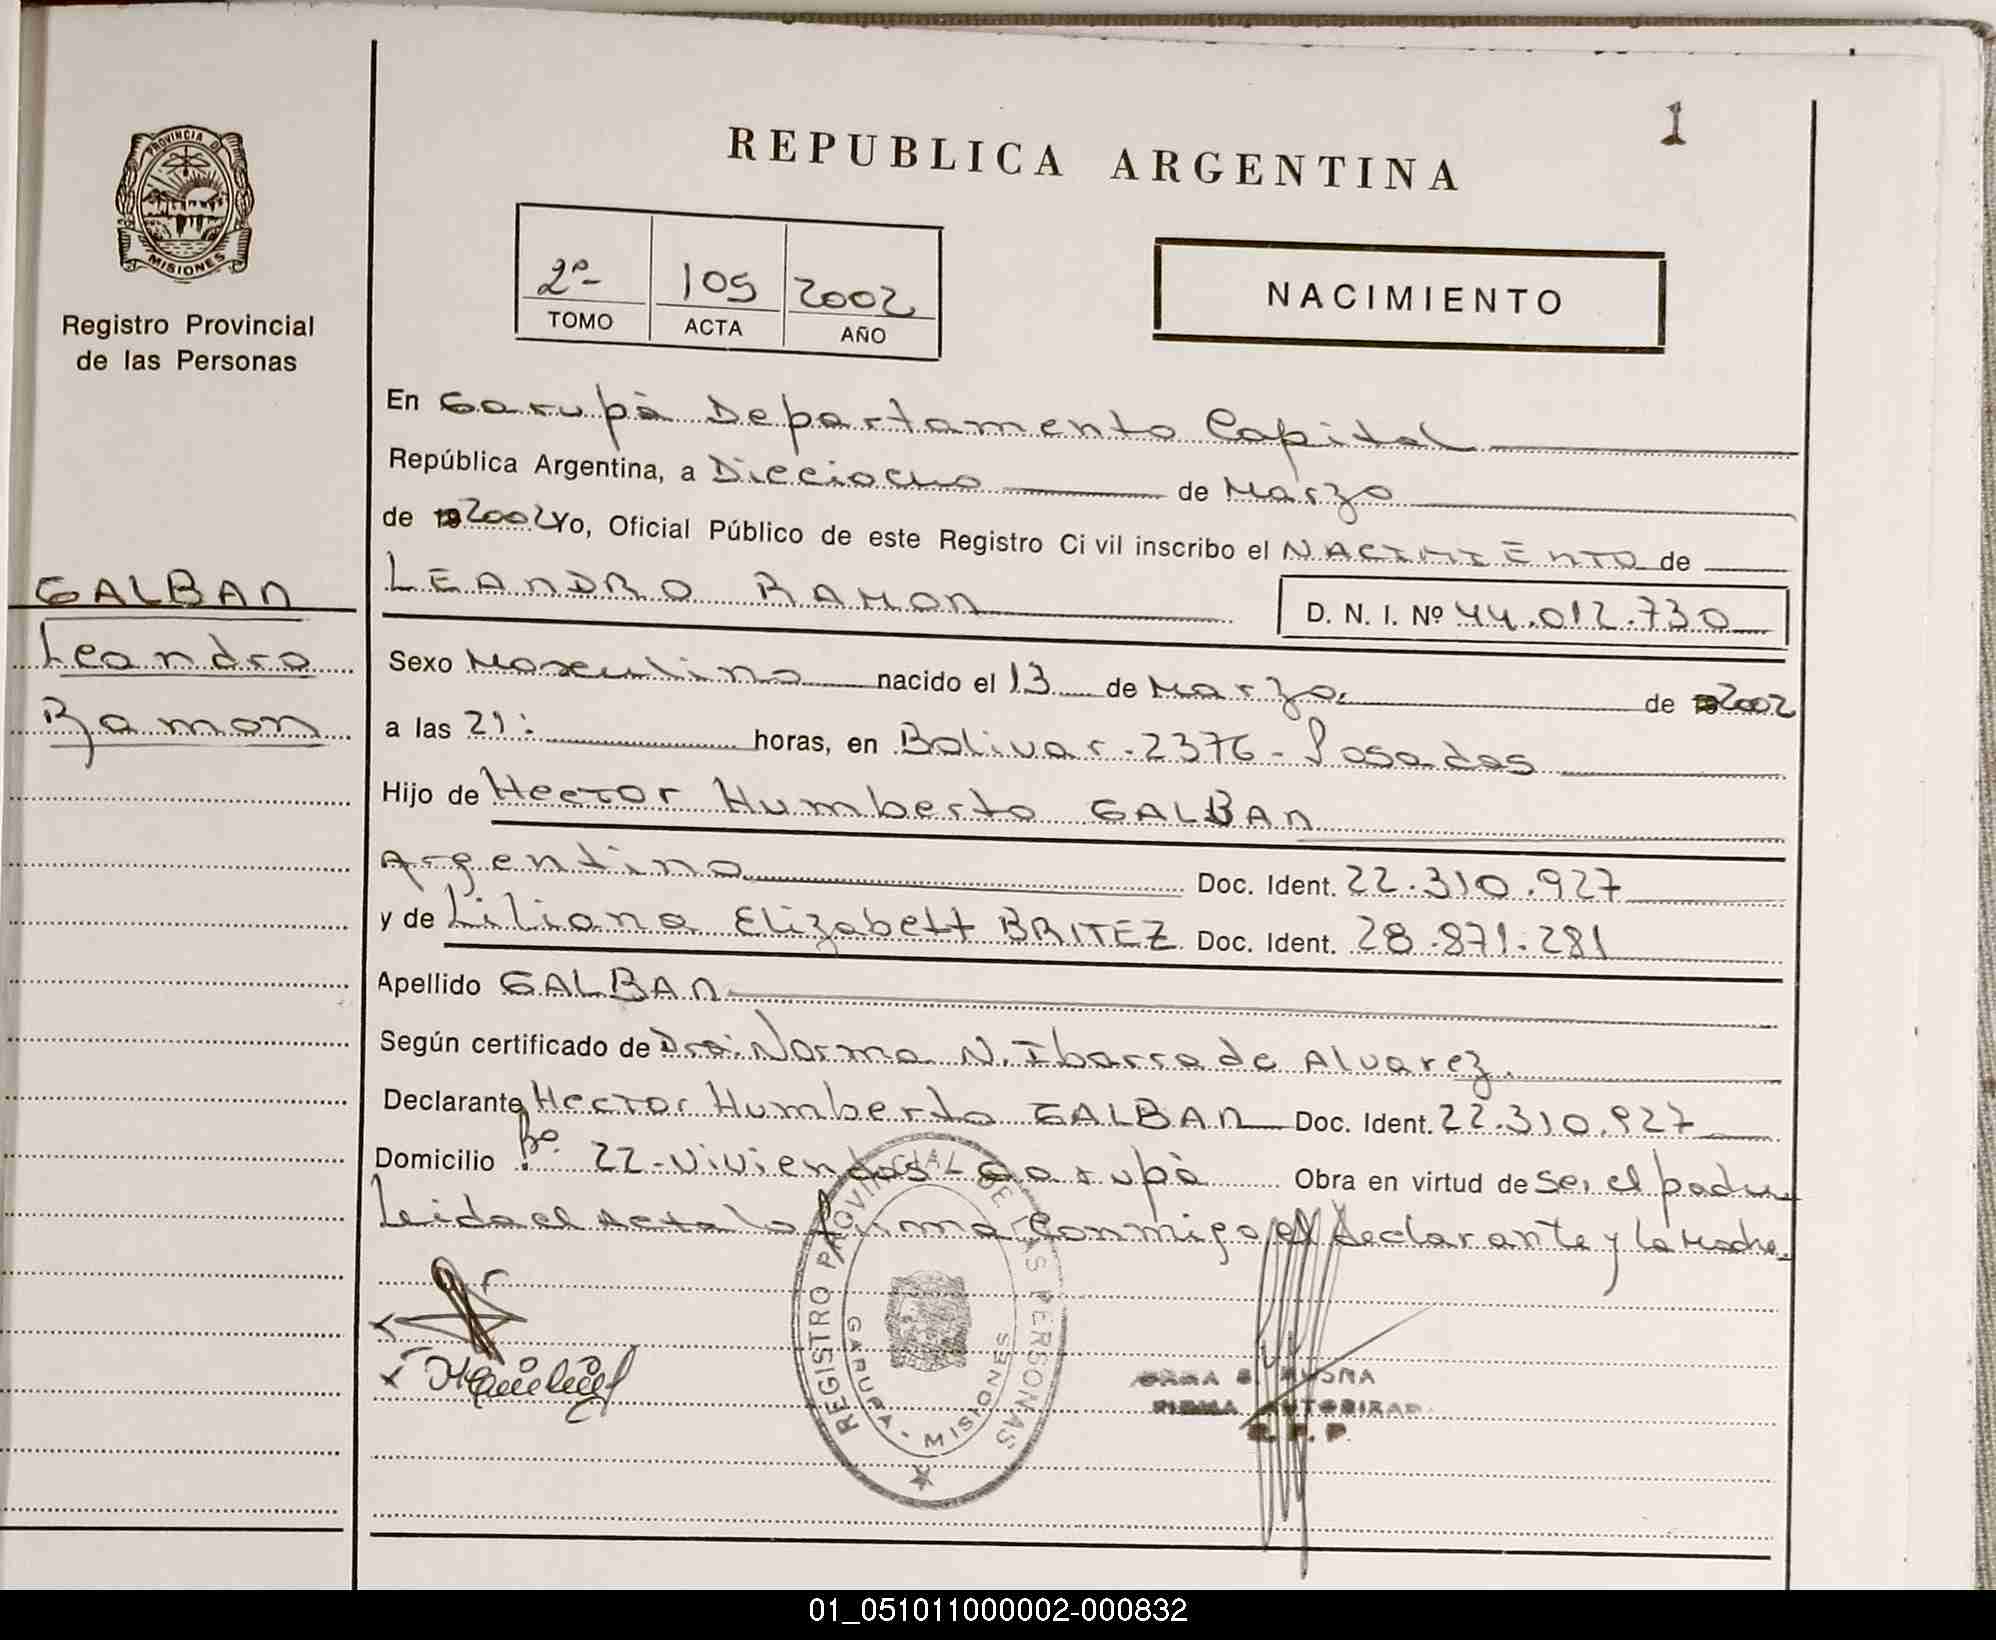 1
PROVINCIA DE
MISIONES
Registro Provincial
de las Personas
REPUBLICA ARGENTINA
2º- 105 2002
TOMO ACTA AÑO
NACIMIENTO
En Garupà Departamento Capital
República Argentina, a Dieciocho de Marzo
de 19 2002 Yo, Oficial Público de este Registro Civil inscribo el NACIMIENTO de
LEANDRO RAMON D. N. I. Nº 44.012.730
GALBAN
Leandro
Ramon
Sexo Masculino nacido el 13 de Marzo. de 19 2002
a las 21: horas, en Bolivar - 2376 - Posadas
Hijo de Hector Humberto GALBAN
Argentino Doc. Ident. 22.310.927
y de Liliana Elizabett BRITEZ Doc. Ident. 28.871.281
Apellido GALBAN
Según certificado de Dra. Norma N. Ibarra de Alvarez.
Declarante Hector Humberto GALBAN Doc. Ident. 22.310.927
Domicilio Bº. 22 - Viviendas - Garupà Obra en virtud de Ser el padre
Leida el Acta la firma Conmigo el declarante y la Madre.
REGISTRO PROVINCIAL DE LAS PERSONAS
GARUPA - MISIONES
FIRMA AUTORIZAD
R. P. P.
01_051011000002-000832